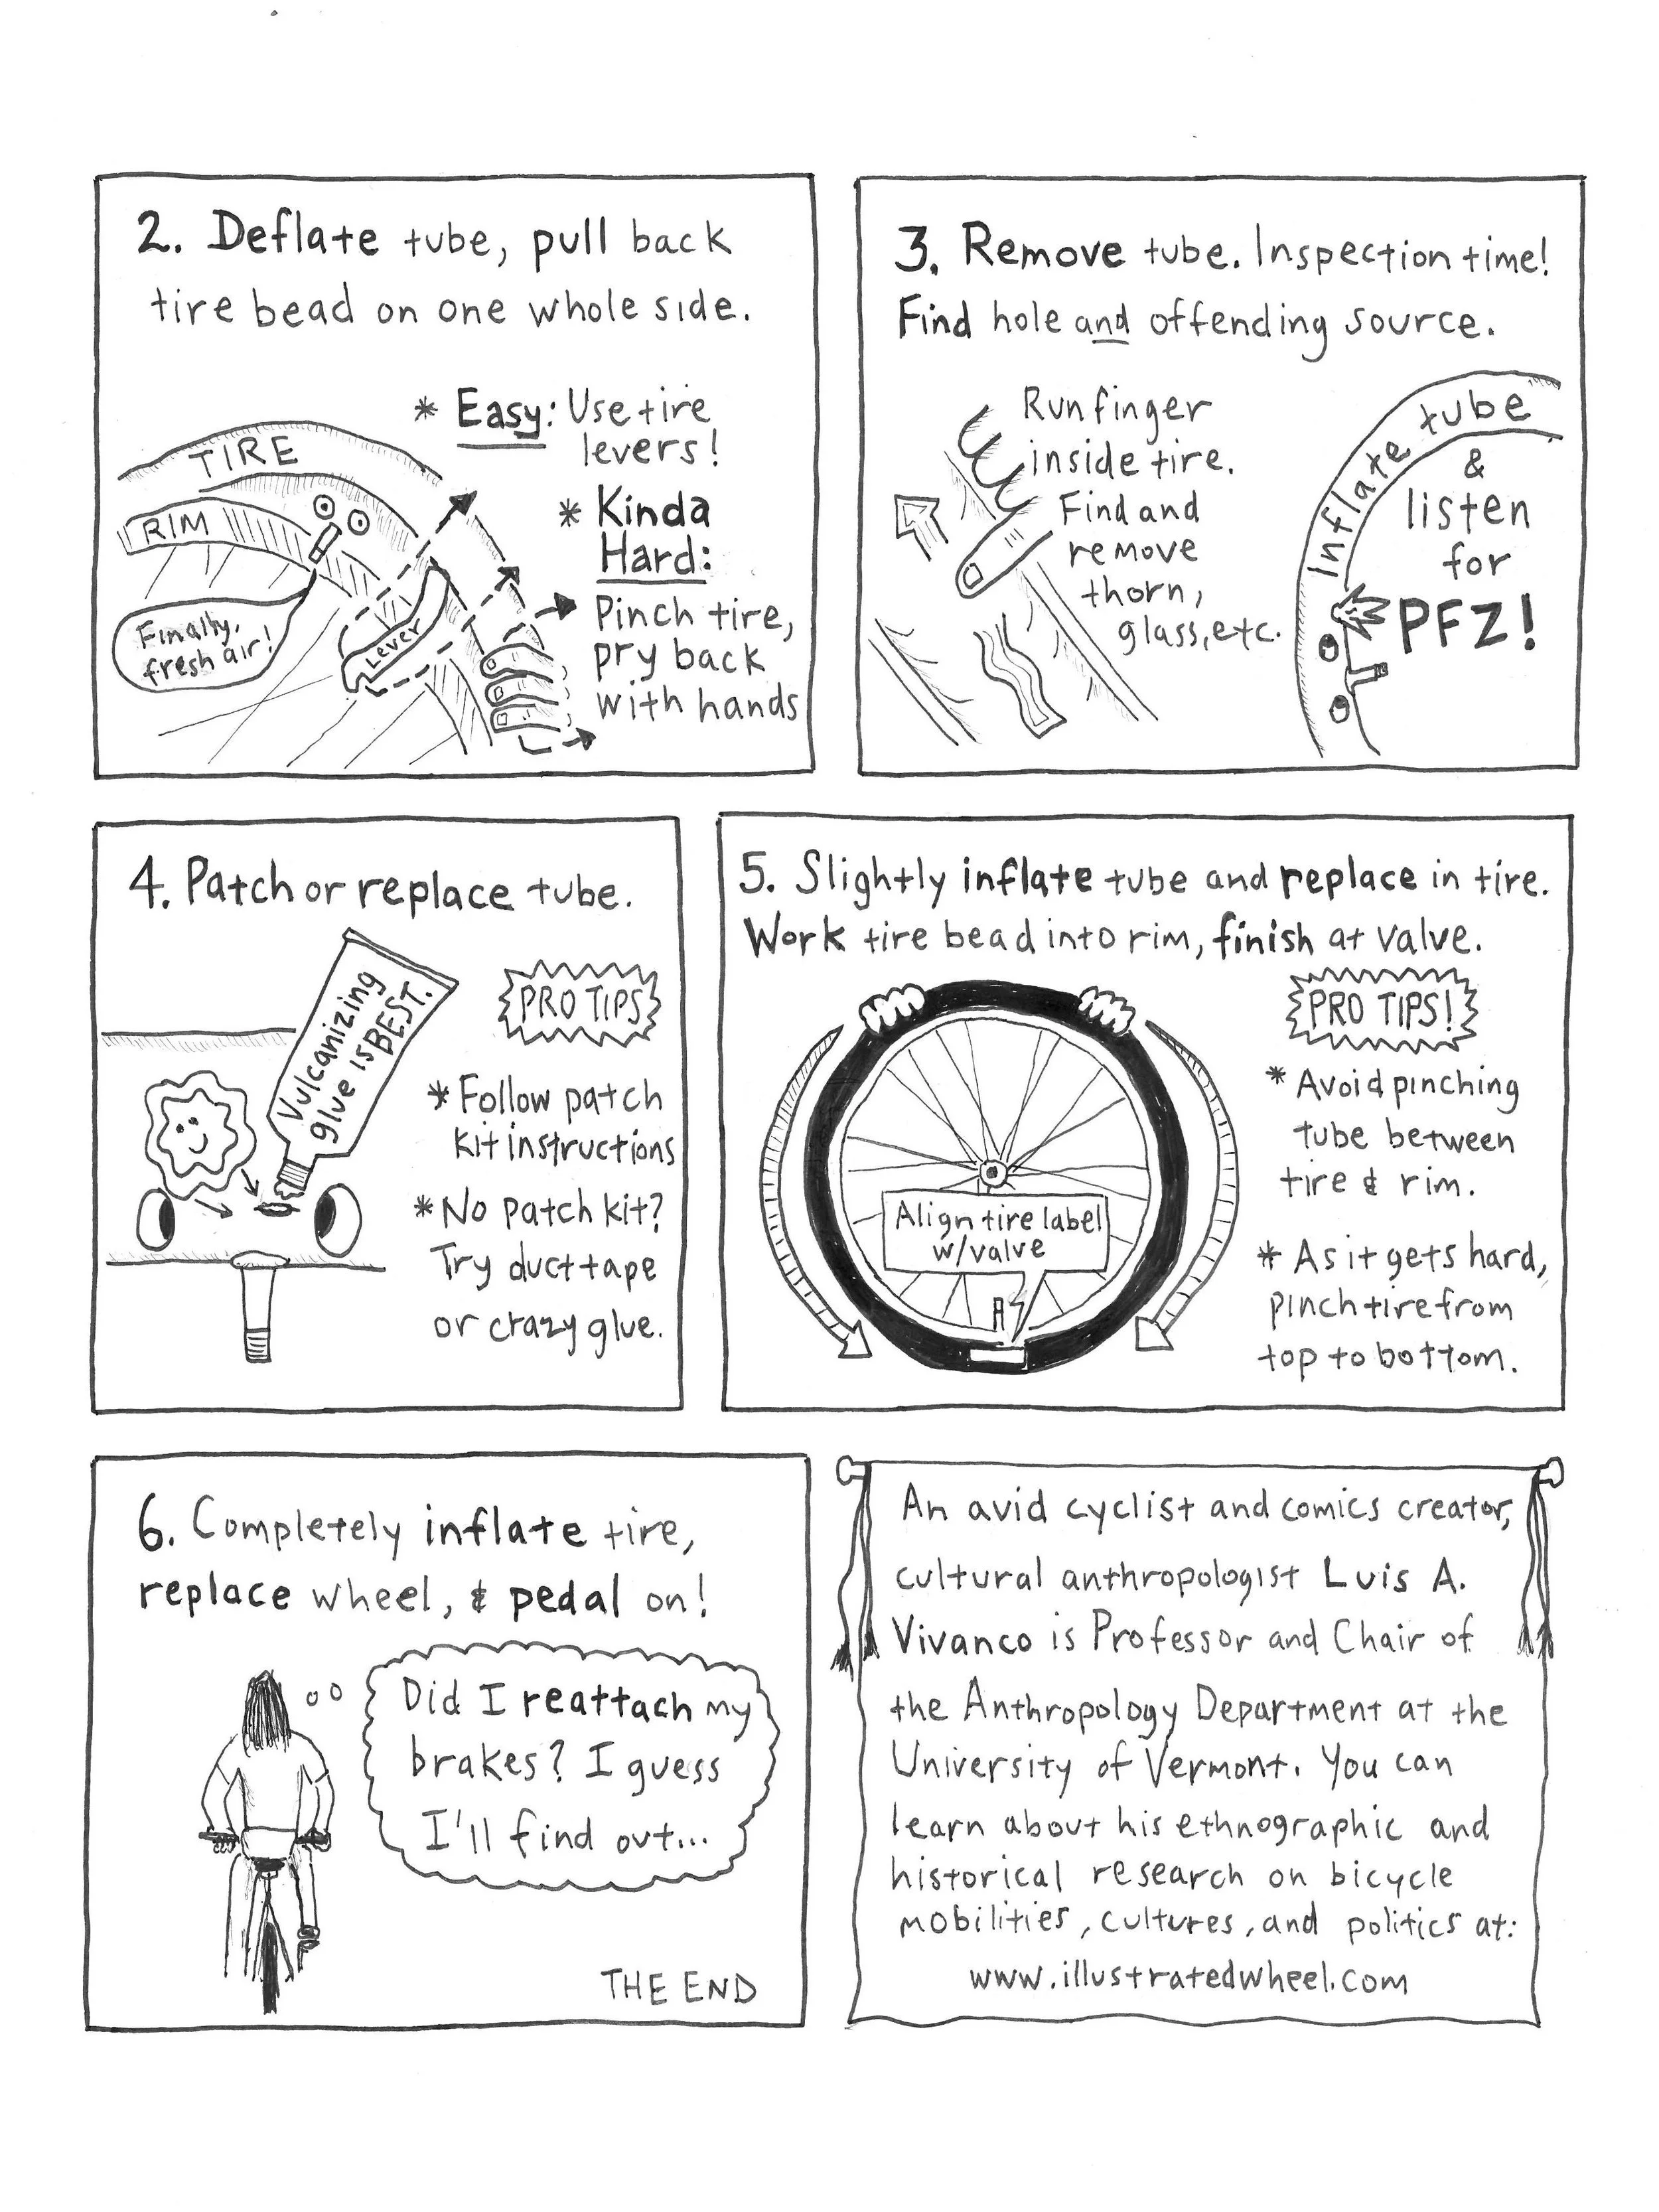 2. Deflate tube, pull back
tire bead on one whole side.
* Easy: Use tire
levers!
* Kinda
Hard:
Pinch tire,
pry back
with hands
TIRE
RIM
Finally,
fresh air!
Lever
3. Remove tube. Inspection time!
Find hole and offending source.
Run finger
inside tire.
Find and
remove
thorn,
glass, etc.
Inflate tube
&
listen
for
PFZ!
4. Patch or replace tube.
Vulcanizing
glue is BEST.
PRO TIPS
* Follow patch
kit instructions
* No patch kit?
Try duct tape
or crazy glue.
5. Slightly inflate tube and replace in tire.
Work tire bead into rim, finish at valve.
Align tire label
w/valve
PRO TIPS!
* Avoid pinching
tube between
tire & rim.
* As it gets hard,
pinch tire from
top to bottom.
6. Completely inflate tire,
replace wheel, & pedal on!
Did I reattach my
brakes? I guess
I'll find out...
THE END
An avid cyclist and comics creator,
cultural anthropologist Luis A.
Vivanco is Professor and Chair of
the Anthropology Department at the
University of Vermont. You can
learn about his ethnographic and
historical research on bicycle
mobilities, cultures, and politics at:
www.illustratedwheel.com